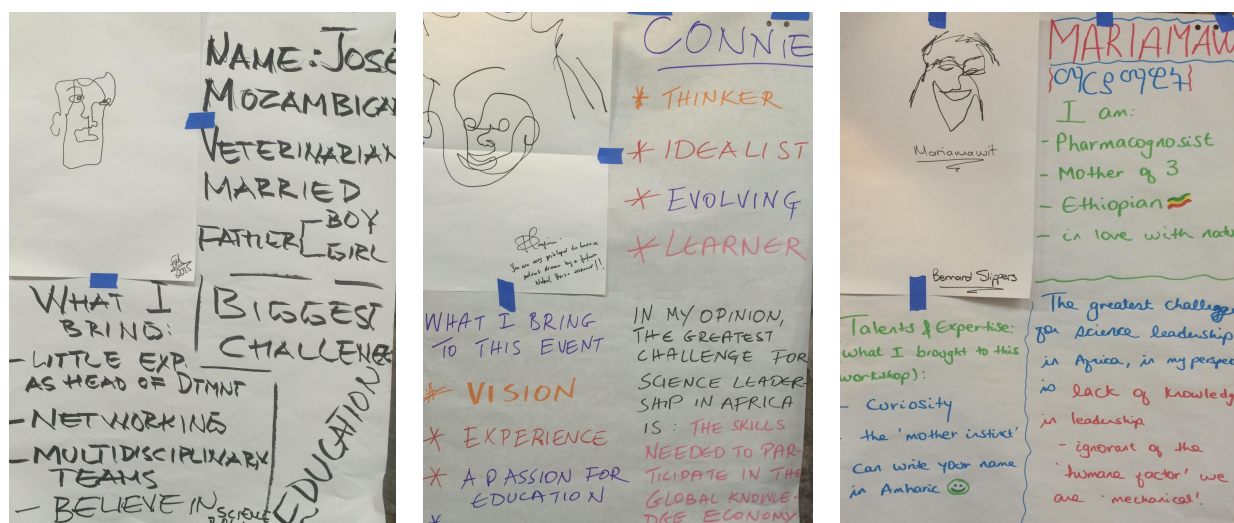 NAME: JOSÉ
MOZAMBICA
VETERINARIAN
MARRIED
FATHER BOY
GIRL
2015
WHAT I
BRING:
- LITTLE EXP.
AS HEAD OF DTMNT
- NETWORKING
- MULTIDISCIPLINARY
TEAMS
- BELIEVE IN SCIENCE
BIGGEST
CHALLENGE
EDUCATION
CONNIE
* THINKER
* IDEALIST
* EVOLVING
* LEARNER
You are very privileged to have a
portrait drawn by a future
Nobel Prize winner!!
WHAT I BRING
TO THIS EVENT
* VISION
* EXPERIENCE
* A PASSION FOR
EDUCATION
*
IN MY OPINION,
THE GREATEST
CHALLENGE FOR
SCIENCE LEADER-
SHIP IN AFRICA
IS: THE SKILLS
NEEDED TO PAR-
TICIPATE IN THE
GLOBAL KNOWLE-
DGE ECONOMY
Mariamawit
Bernard Slippers
MARIAMAW
I am:
- Pharmacognosist
- Mother of 3
- Ethiopian
- in love with natu
Talents & Expertise:
what I brought to this
workshop):
- Curiosity
- the 'mother instinct'
can write your name
in Amharic
The greatest challenge
for science leadership
in Africa, in my perspec
is lack of knowledg
in leadership
- ignorant of the
'humane factor' we
are 'mechanical'.